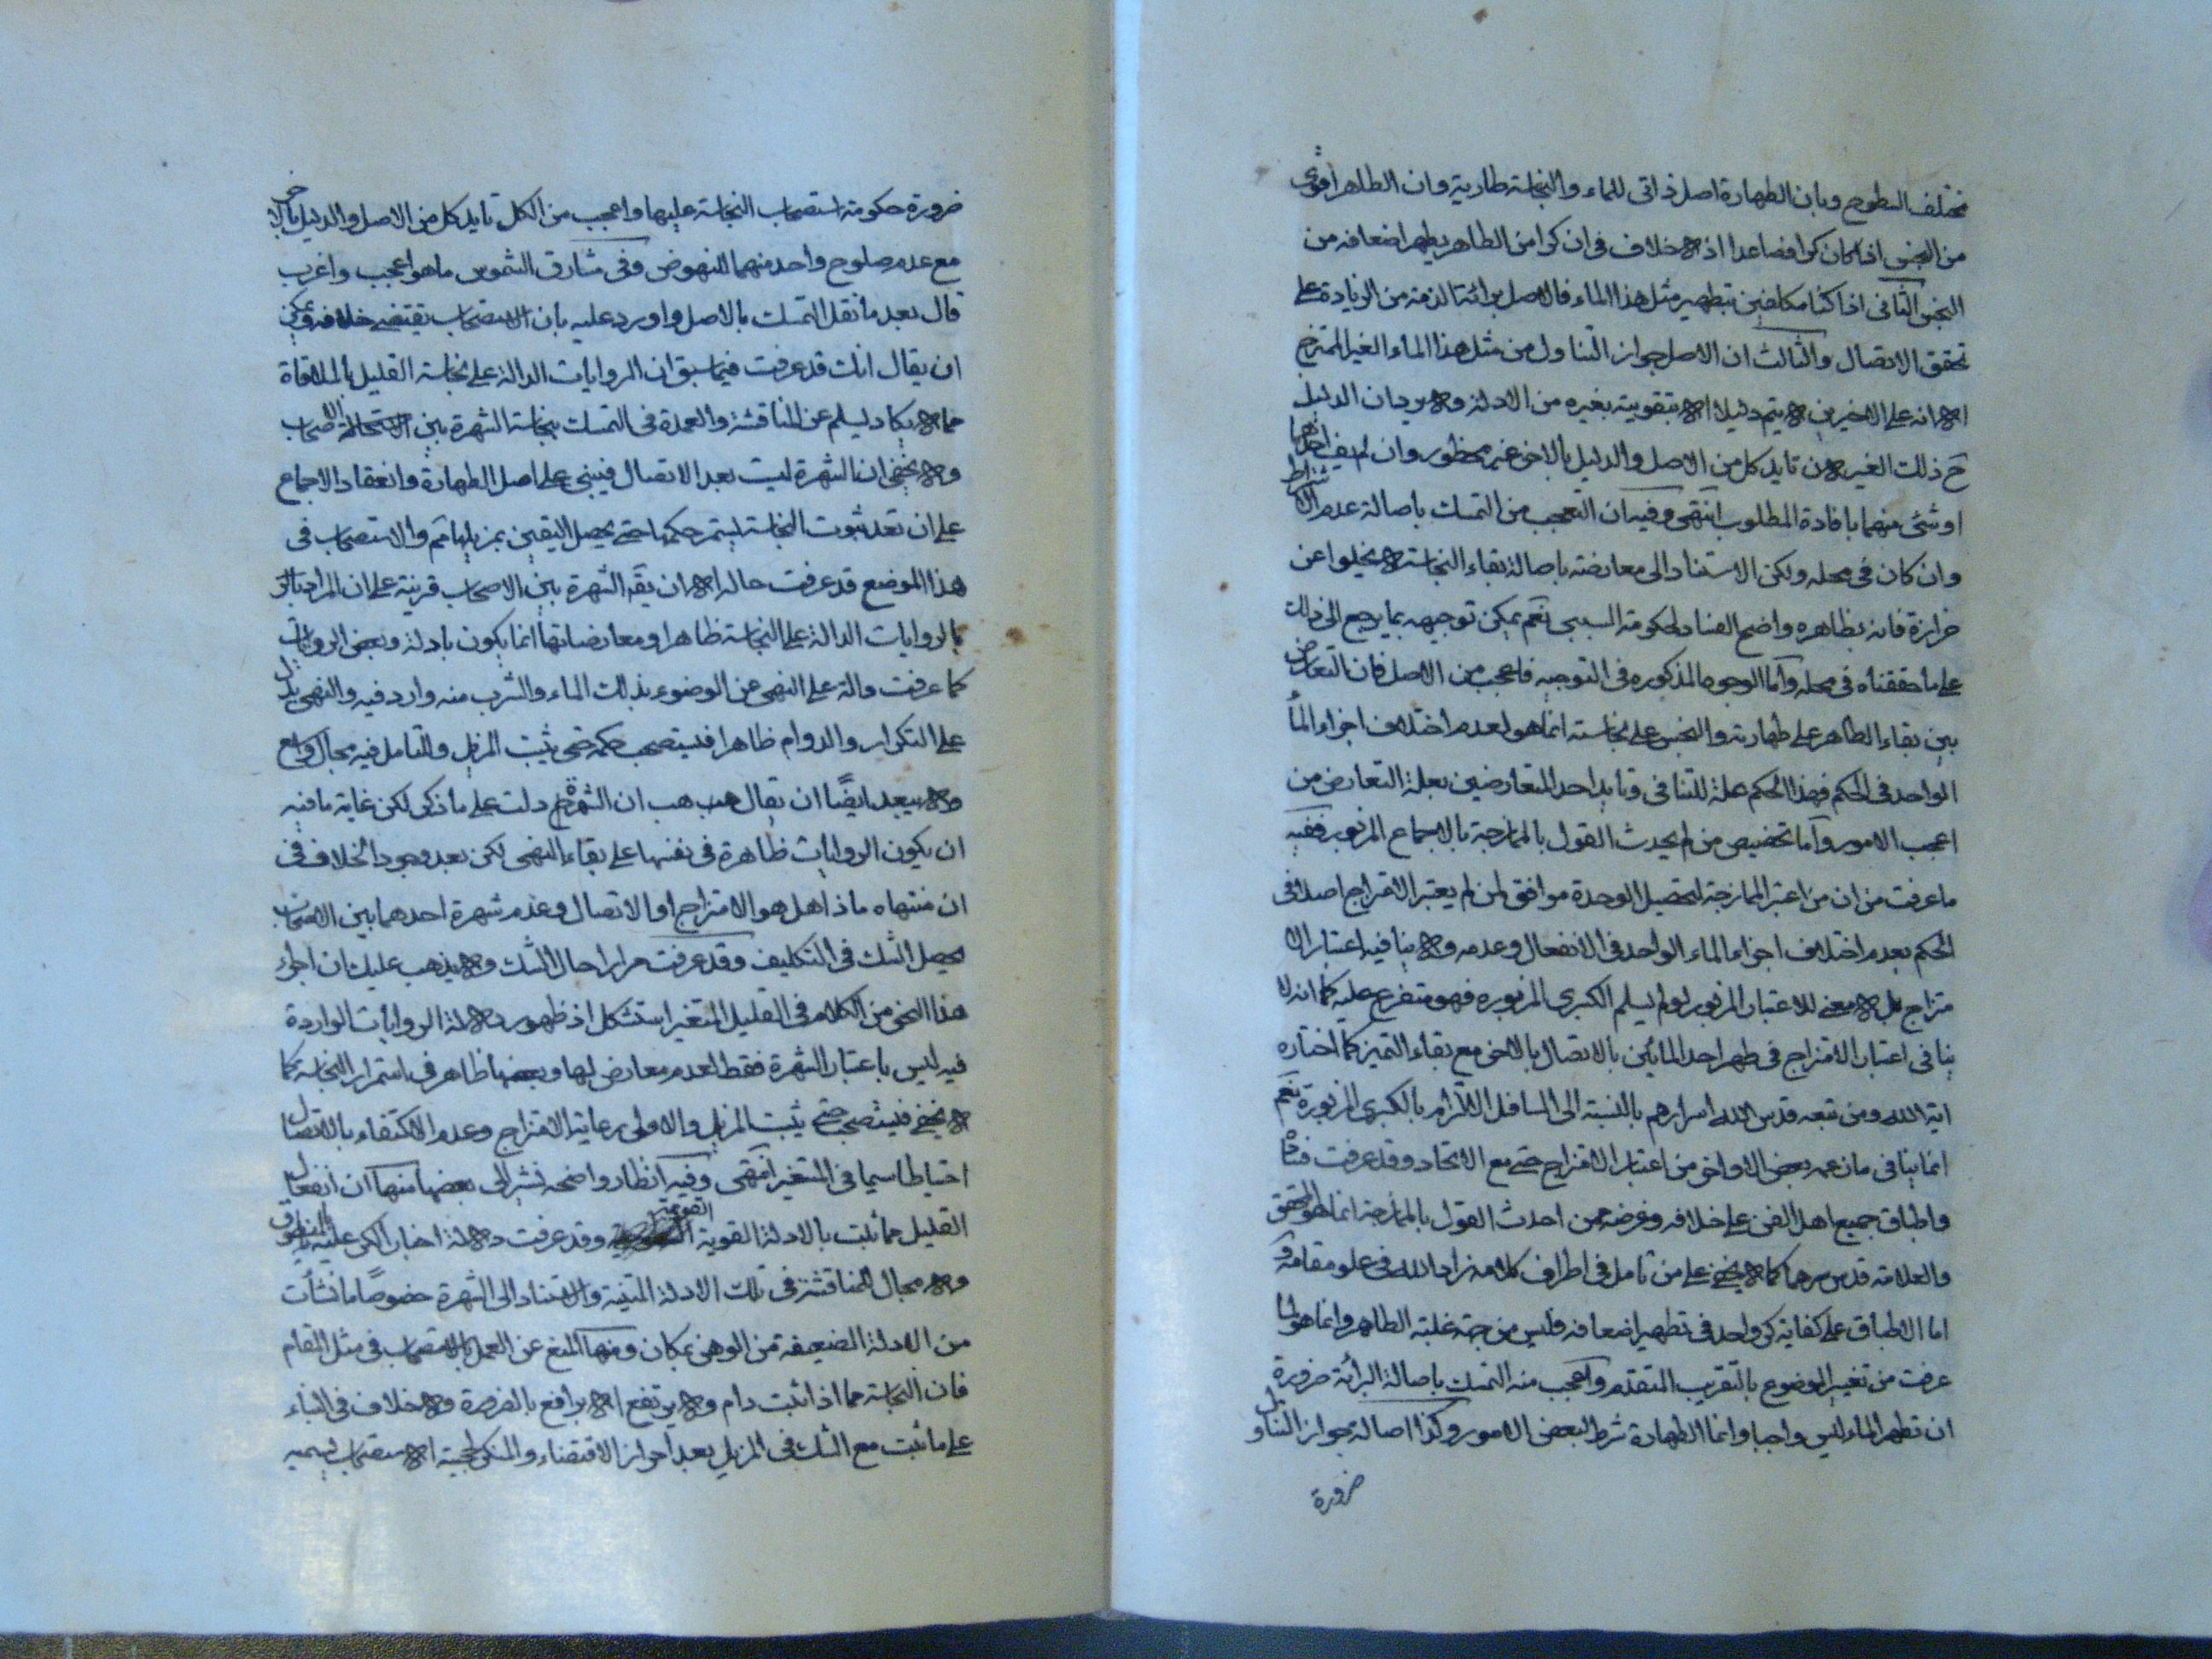 مختلف السطوح وبان الطهارة اصل ذاتى للماء والنجاسة طارية وان الطاهر اقوى
من النجس اذا كان كرا فصاعدا اذ لا خلاف فى ان كرا من الطاهر يطهر اضعافه من
النجس الثانى اذا كنا مكلفين بتطهير مثل هذا الماء فالاصل برائة الذمة من الزيادة على
تحقق الاتصال والثالث ان الاصل جواز التناول من مثل هذا الماء الغير الممتزج
الا انه على الاخيرين لا يتم دليلا الا بتقويته بغيره من الادلة ولا يردان الدليل
ح ذلك الغير لان تايد كل من الاصل والدليل بالاخر غير محظور وان لم يف احدهما
او شئ منهما بافادة المطلوب انتهى وفيه ان التعجب من التمسك باصالة عدم الاشتراط
وان كان فى محله ولكن الاستناد الى معارضته باصالة بقاء النجاسة لا يخلوا عن
حزازة فانه بظاهره واضح الفساد لحكومة السببى نعم يمكن توجيهه بما يرجع الى ذلك
على ما حققناه فى محله وأما الوجوه المذكوره فى التوجيه فاعجب من الاصل فان التعارض
بين بقاء الطاهر على طهارته والنجس على نجاسته انما هو لعدم اختلاف اجزاء الماء
الواحد فى الحكم فهذا الحكم علة للتنافى وتايد احد المتعارضين بعلة التعارض من
اعجب الامور وأما تخصيص من لم يحدث القول بالممازجة بالاجماع المزبور ففيه
ما عرفت من ان من اعتبر الممازجة لتحصيل الوحدة موافق لمن لم يعتبر الامتزاج اصلا فى
الحكم بعدم اختلاف اجزاء الماء الواحد فى الانفعال وعدمه ولا ينافيه اعتبار الا
متزاج بل لا معنى للاعتبار المزبور لو لم يسلم الكبرى المزبوره فهو متفرع عليه كما انه لا
ينافى اعتبار الامتزاج فى طهر احد المائين بالاتصال بالاخر مع بقاء التميز كما اختاره
اية الله ومن تبعه قدس الله اسرارهم بالنسبة الى السافل الالتزام بالكبرى المزبورة نعم
انما ينافى ما زعمه بعض الاواخر من اعتبار الامتزاج حتى مع الاتحاد وقد عرفت
واطباق جميع اهل الفن على خلافه وغرضه ممن احدث القول بالممازجة انما هو المحقق
والعلامة قدس سرهما كما لا يخفى على من تامل فى اطراف كلامه زاد الله فى علو مقامه و
اما الاطباق على كفاية كر واحد فى تطهير اضعافه فليس من جهة غلبة الطاهر وانما هو لما
عرفت من تغير الموضوع بالتقريب المتقدم واعجب منه التمسك باصالة البرائة ضرورة
ان تطهير الماء ليس واجبا وانما الطهارة شرط لبعض الامور وكذا اصالة جواز التناول
ضرورة
ضرورة حكومة استصحاب النجاسة عليها واعجب من الكل تايد كل من الاصل والدليل بالاخر
مع عدم صلوح واحد منهما للنهوض وفى مشارق الشموس ما هو اعجب واغرب
قال بعد ما نقل التمسك بالاصل واورد عليه بان الاستصحاب يقتضى خلافه ويمكن
ان يقال انك قد عرفت فيما سبق ان الروايات الدالة على نجاسة القليل بالملاقاة
مما لا يكاد يسلم عن المناقشة والعمدة فى التمسك بنجاسته الشهرة بين الاصحاب
ولا يخفى ان الشهرة ليست بعد الاتصال فيبنى على اصل الطهارة وانعقاد الاجماع
على ان بعد ثبوت النجاسة يستمر حكمها حتى يحصل اليقين بمزيلها مم والاستصحاب فى
هذا الموضع قد عرفت حاله الا ان يق الشهرة بين الاصحاب قرينة على ان المراد
بالروايات الدالة على النجاسة ظاهرا ومعارضاتها انما يكون بادلة وبعض الروايات
كما عرفت دالة على النهى عن الوضوء بذلك الماء والشرب منه وارد فيه والنهى يدل
على التكرار والدوام ظاهرا فيستصحب حكمه حتى يثبت المزيل وللتامل فيه مجال واسع
ولا يبعد ايضًا ان يقال هب ان الشهرة دلت على ما ذكر لكن غاية ما فيه
ان يكون الروايات ظاهرة فى نفسها على بقاء النهى لكن بعد وجود الخلاف فى
ان منتهاه ماذا هل هو الامتزاج او الاتصال وعدم شهرة احدهما بين الاصحاب
يحصل الشك فى التكليف وقد عرفت مرارا حال الشك ولا يذهب عليك ان اجراء
هذا النحو من الكلام فى القليل المتغير استشكل اذ ظهور دلالة الروايات الواردة
فيه ليس باعتبار الشهرة فقط لعدم معارض لها وبعضها ظاهر فى استمرار النجاسة كما
لا يخفى فيستصحب حتى يثبت المزيل والاولى رعاية الامتزاج وعدم الاكتفاء بالاتصال
احتياطا سيما فى المتغير انتهى وفيه انظار واضحه نشير الى بعضها منها ان انفعال
القليل مما ثبت بالادلة القوية القويمة وقد عرفت دلالة اخبار الكر عليه بالمنطوق
ولا مجال للمناقشة فى تلك الادلة المتينة والاستناد الى الشهرة خصوصًا ما نشأت
من الادلة الضعيفة من الوهن بمكان ومنها المنع عن العمل بالاستصحاب فى مثل المقام
فان النجاسة مما اذا ثبت دام ولا يرتفع الا برافع بالضرورة ولا خلاف فى البناء
على ما ثبت مع الشك فى المزيل بعد احراز الاقتضاء والمنكر لحجية الاستصحاب يسميه